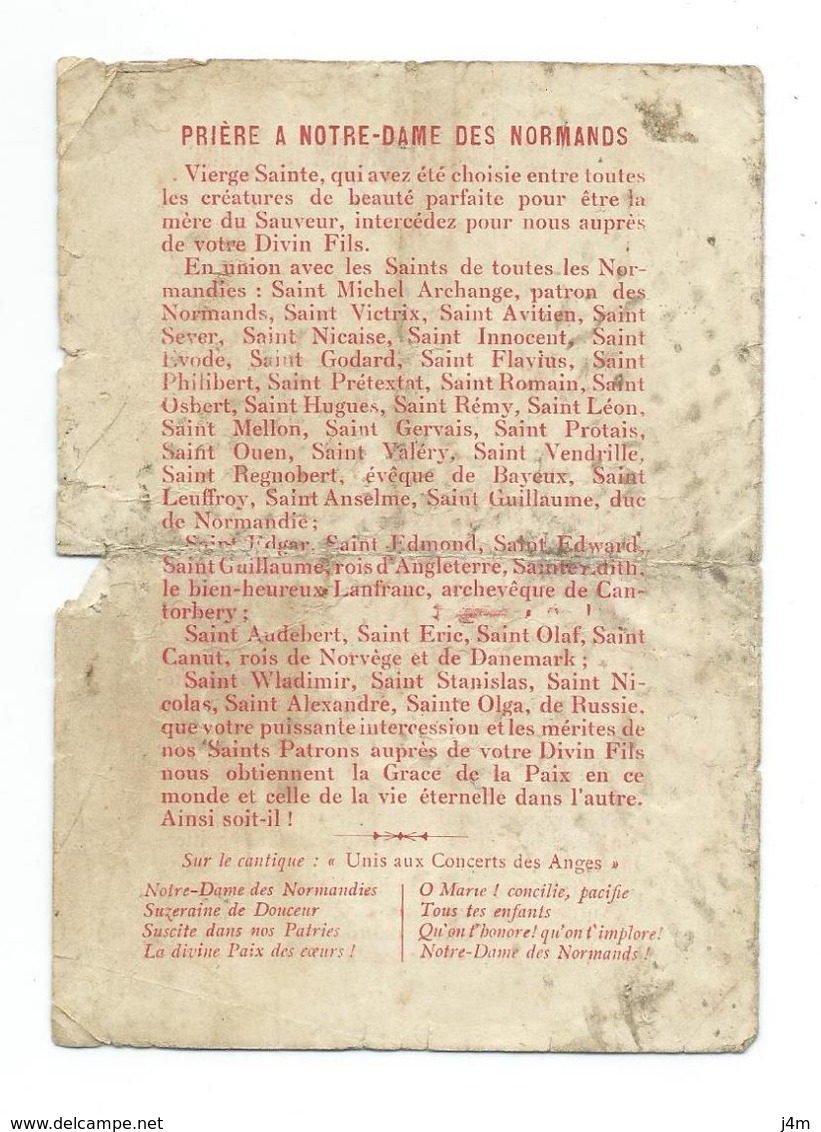 PRIÈRE A NOTRE-DAME DES NORMANDS
Vierge Sainte, qui avez été choisie entre toutes
les créatures de beauté parfaite pour être la
mère du Sauveur, intercédez pour nous auprès
de votre Divin Fils.
En union avec les Saints de toutes les Nor-
mandies : Saint Michel Archange, patron des
Normands, Saint Victrix, Saint Avitien, Saint
Sever, Saint Nicaise, Saint Innocent, Saint
Evode, Saint Godard, Saint Flavius, Saint
Philibert, Saint Prétextat, Saint Romain, Saint
Osbert, Saint Hugues, Saint Rémy, Saint Léon,
Saint Mellon, Saint Gervais, Saint Protais,
Saint Ouen, Saint Valéry, Saint Vendrille,
Saint Regnobert, évêque de Bayeux, Saint
Leuffroy, Saint Anselme, Saint Guillaume, duc
de Normandie ;
Saint Edgar, Saint Edmond, Saint Edward,
Saint Guillaume, rois d'Angleterre, Sainte Edith,
le bien-heureux Lanfranc, archevêque de Can-
torbery ;
Saint Audebert, Saint Eric, Saint Olaf, Saint
Canut, rois de Norvège et de Danemark ;
Saint Wladimir, Saint Stanislas, Saint Ni-
colas, Saint Alexandre, Sainte Olga, de Russie,
que votre puissante intercession et les mérites de
nos Saints Patrons auprès de votre Divin Fils
nous obtiennent la Grace de la Paix en ce
monde et celle de la vie éternelle dans l'autre.
Ainsi soit-il !
Sur le cantique : « Unis aux Concerts des Anges »
Notre-Dame des Normandies
Suzeraine de Douceur
Suscite dans nos Patries
La divine Paix des cœurs !
O Marie ! concilie, pacifie
Tous tes enfants
Qu'on t'honore! qu'on t'implore!
Notre-Dame des Normands !
www.delcampe.net
j4m